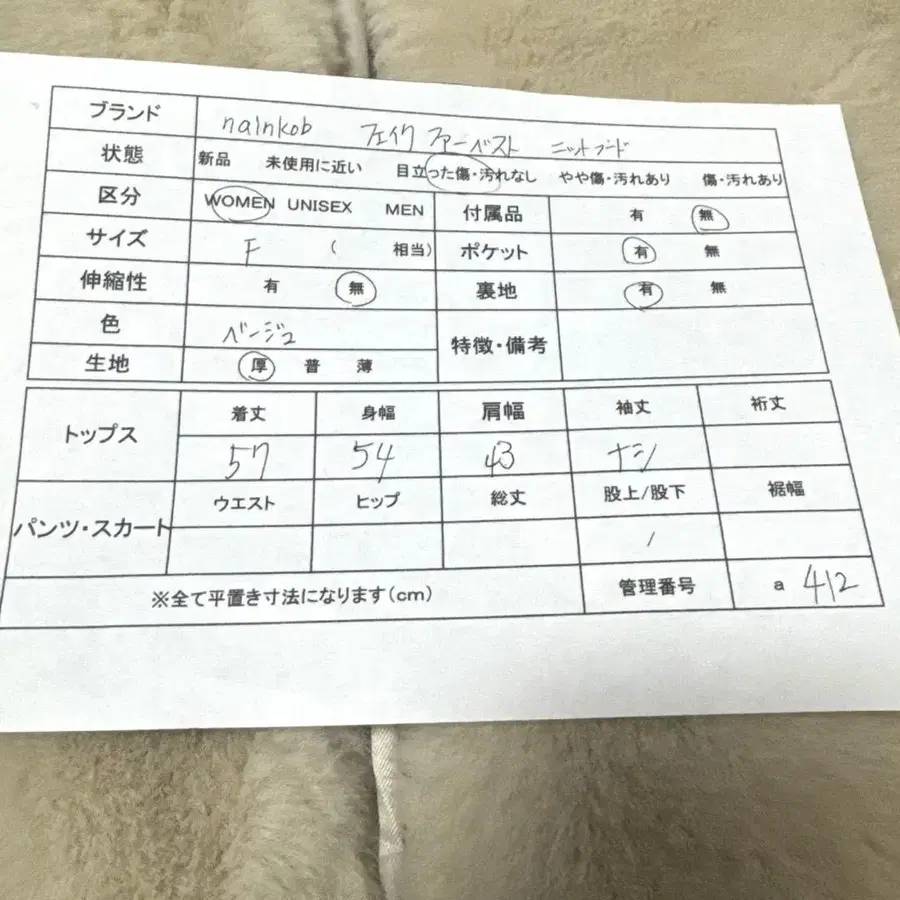 ブランド nainkob フェイクファーベスト ニットフード
状態 新品 未使用に近い 目立った傷・汚れなし やや傷・汚れあり 傷・汚れあり
区分 WOMEN UNISEX MEN 付属品 有 無
サイズ F ( 相当) ポケット 有 無
伸縮性 有 無 裏地 有 無
色 ベージュ 特徴・備考
生地 厚 普 薄
トップス 着丈 身幅 肩幅 袖丈 裄丈
57 54 43 ナシ
パンツ・スカート ウエスト ヒップ 総丈 股上/股下 裾幅
/
※全て平置き寸法になります(cm) 管理番号 a 412